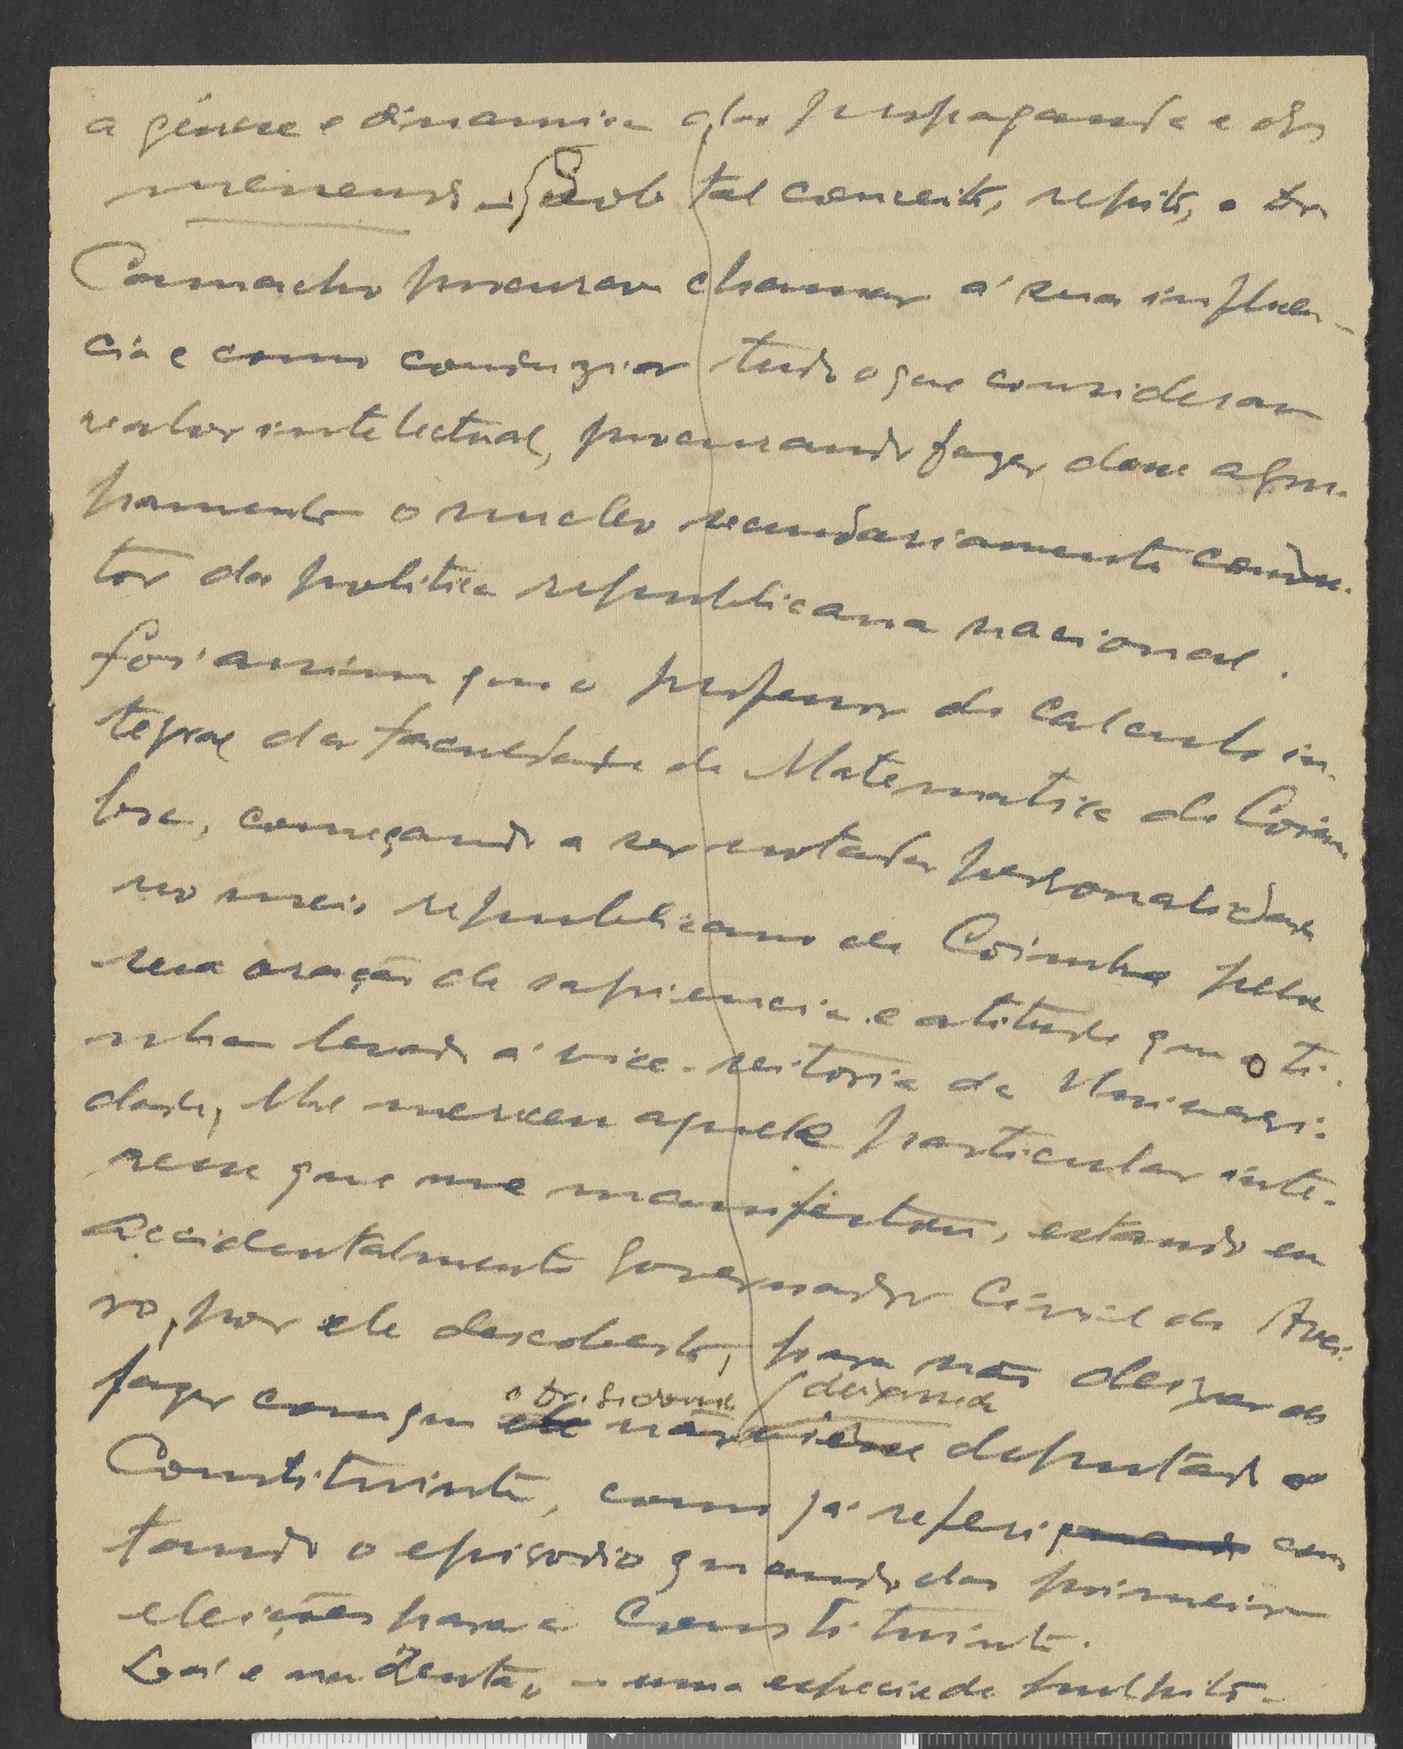 a génese e dinamica da propaganda e dos
meneurs. Sob tal conceito, repito, o dr.
Camacho procurava chamar á sua influen-
cia e como conduzir tudo o que considerava
valor intelectual, procurando fazer desse agru-
pamento o nucleo secundariamente condu-
tor da politica republicana nacional.
Foi assim que o professor de calculo in-
tegral da faculdade de Matematica de Coim-
bra, começando a ser notada personalidade
no meio republicano de Coimbra pela
sua oração de sapiencia e atitude que o ti-
nha levado á vice-reitoria da Universi-
dade, lhe mereceu aquele particular inte-
resse que me manifestou, estando eu
accidentalmente Governador Civil de Avei-
ro, por ele descoberto, para não deixar de
fazer com que o dr. Sidonio não deixasse
ele viesse deputado á
Constituinte, como já referi quando con
tando o episodio quando das primeiras
eleições para a Constituinte.
Loi e uma especie de pulpito.